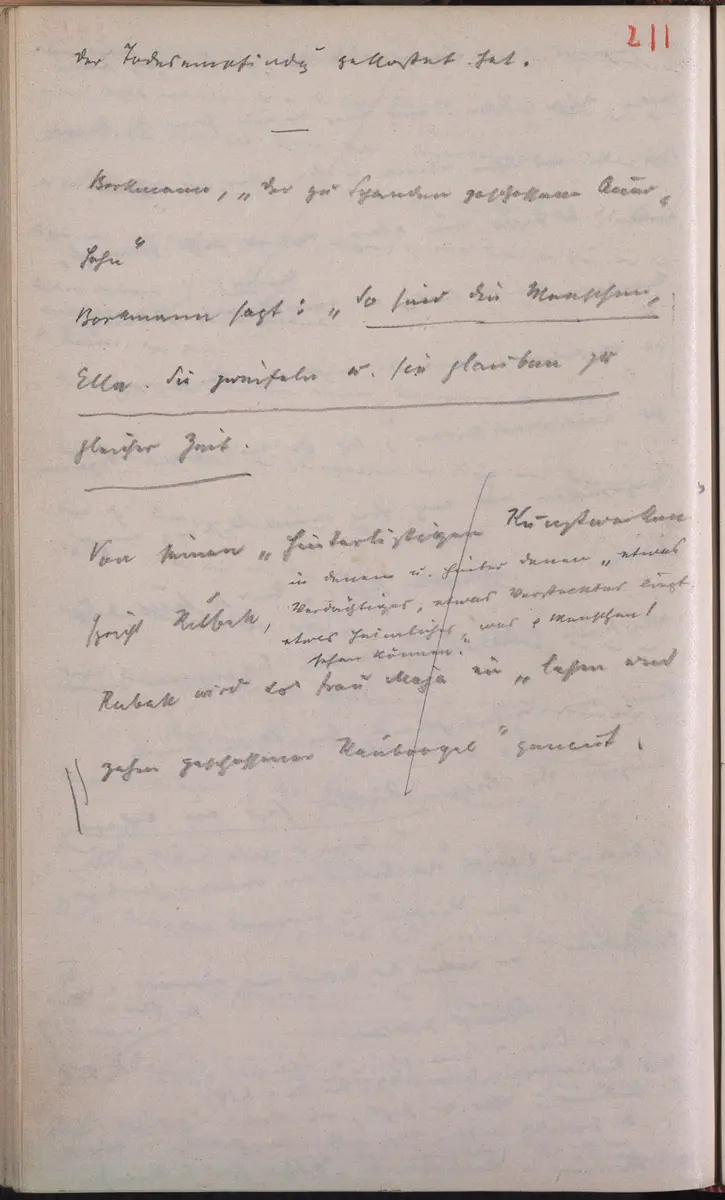 211
der Todesempfindg gekostet hat.
Borkmann, „der zu Schanden geschossene Auer-
hahn“
Borkmann sagt: „So sind die Menschen,
Ella. Sie zweifeln u. sie glauben zu
gleicher Zeit.
Von seinen „hinterlistigen Kunstwerken“
in denen u. hinter denen „etwas
spricht Rubek, Verdächtiges, etwas Verstecktes liegt,
etwas Heimliches“, was Menschen!
sehen können.
Rubek wird Frau Maja ein „lahm und
zahm geschossener Raubvogel“ genannt.